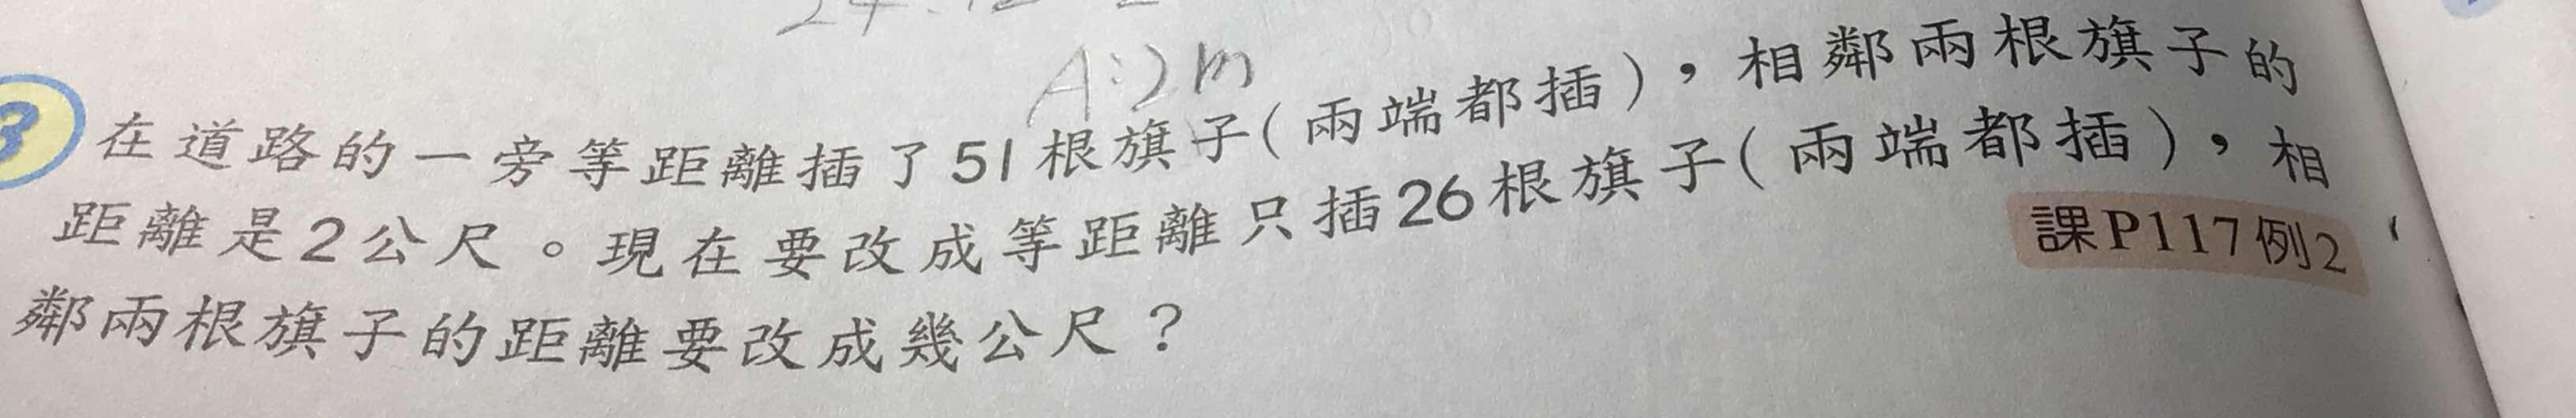 A:2m
3 在道路的一旁等距離插了51根旗子(兩端都插),相鄰兩根旗子的
距離是2公尺。現在要改成等距離只插26根旗子(兩端都插),相
鄰兩根旗子的距離要改成幾公尺?
課P117例2